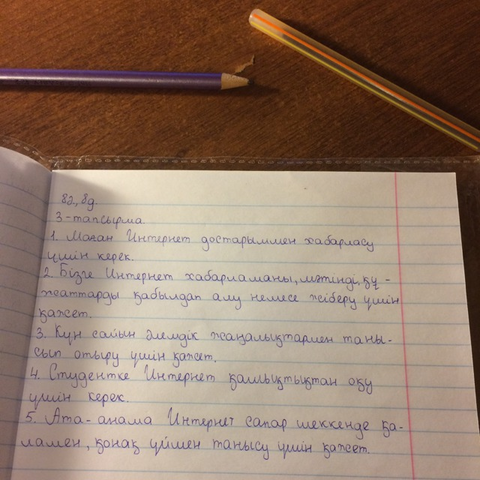 82, 8д.
3-тапсырма.
1. Маған Интернет достарыммен хабарласу
үшін керек.
2. Бізге Интернет хабарламаны, мәтінді, құ-
жаттарды қабылдап алу немесе жіберу үшін
қажет.
3. Күн сайын әлемдік жаңалықтармен таны-
сып отыру үшін қажет.
4. Студентке Интернет қашықтықтан оқу
үшін керек.
5. Ата-анама Интернет сапар шеккенде қа-
ламен, қонақ үймен танысу үшін қажет.